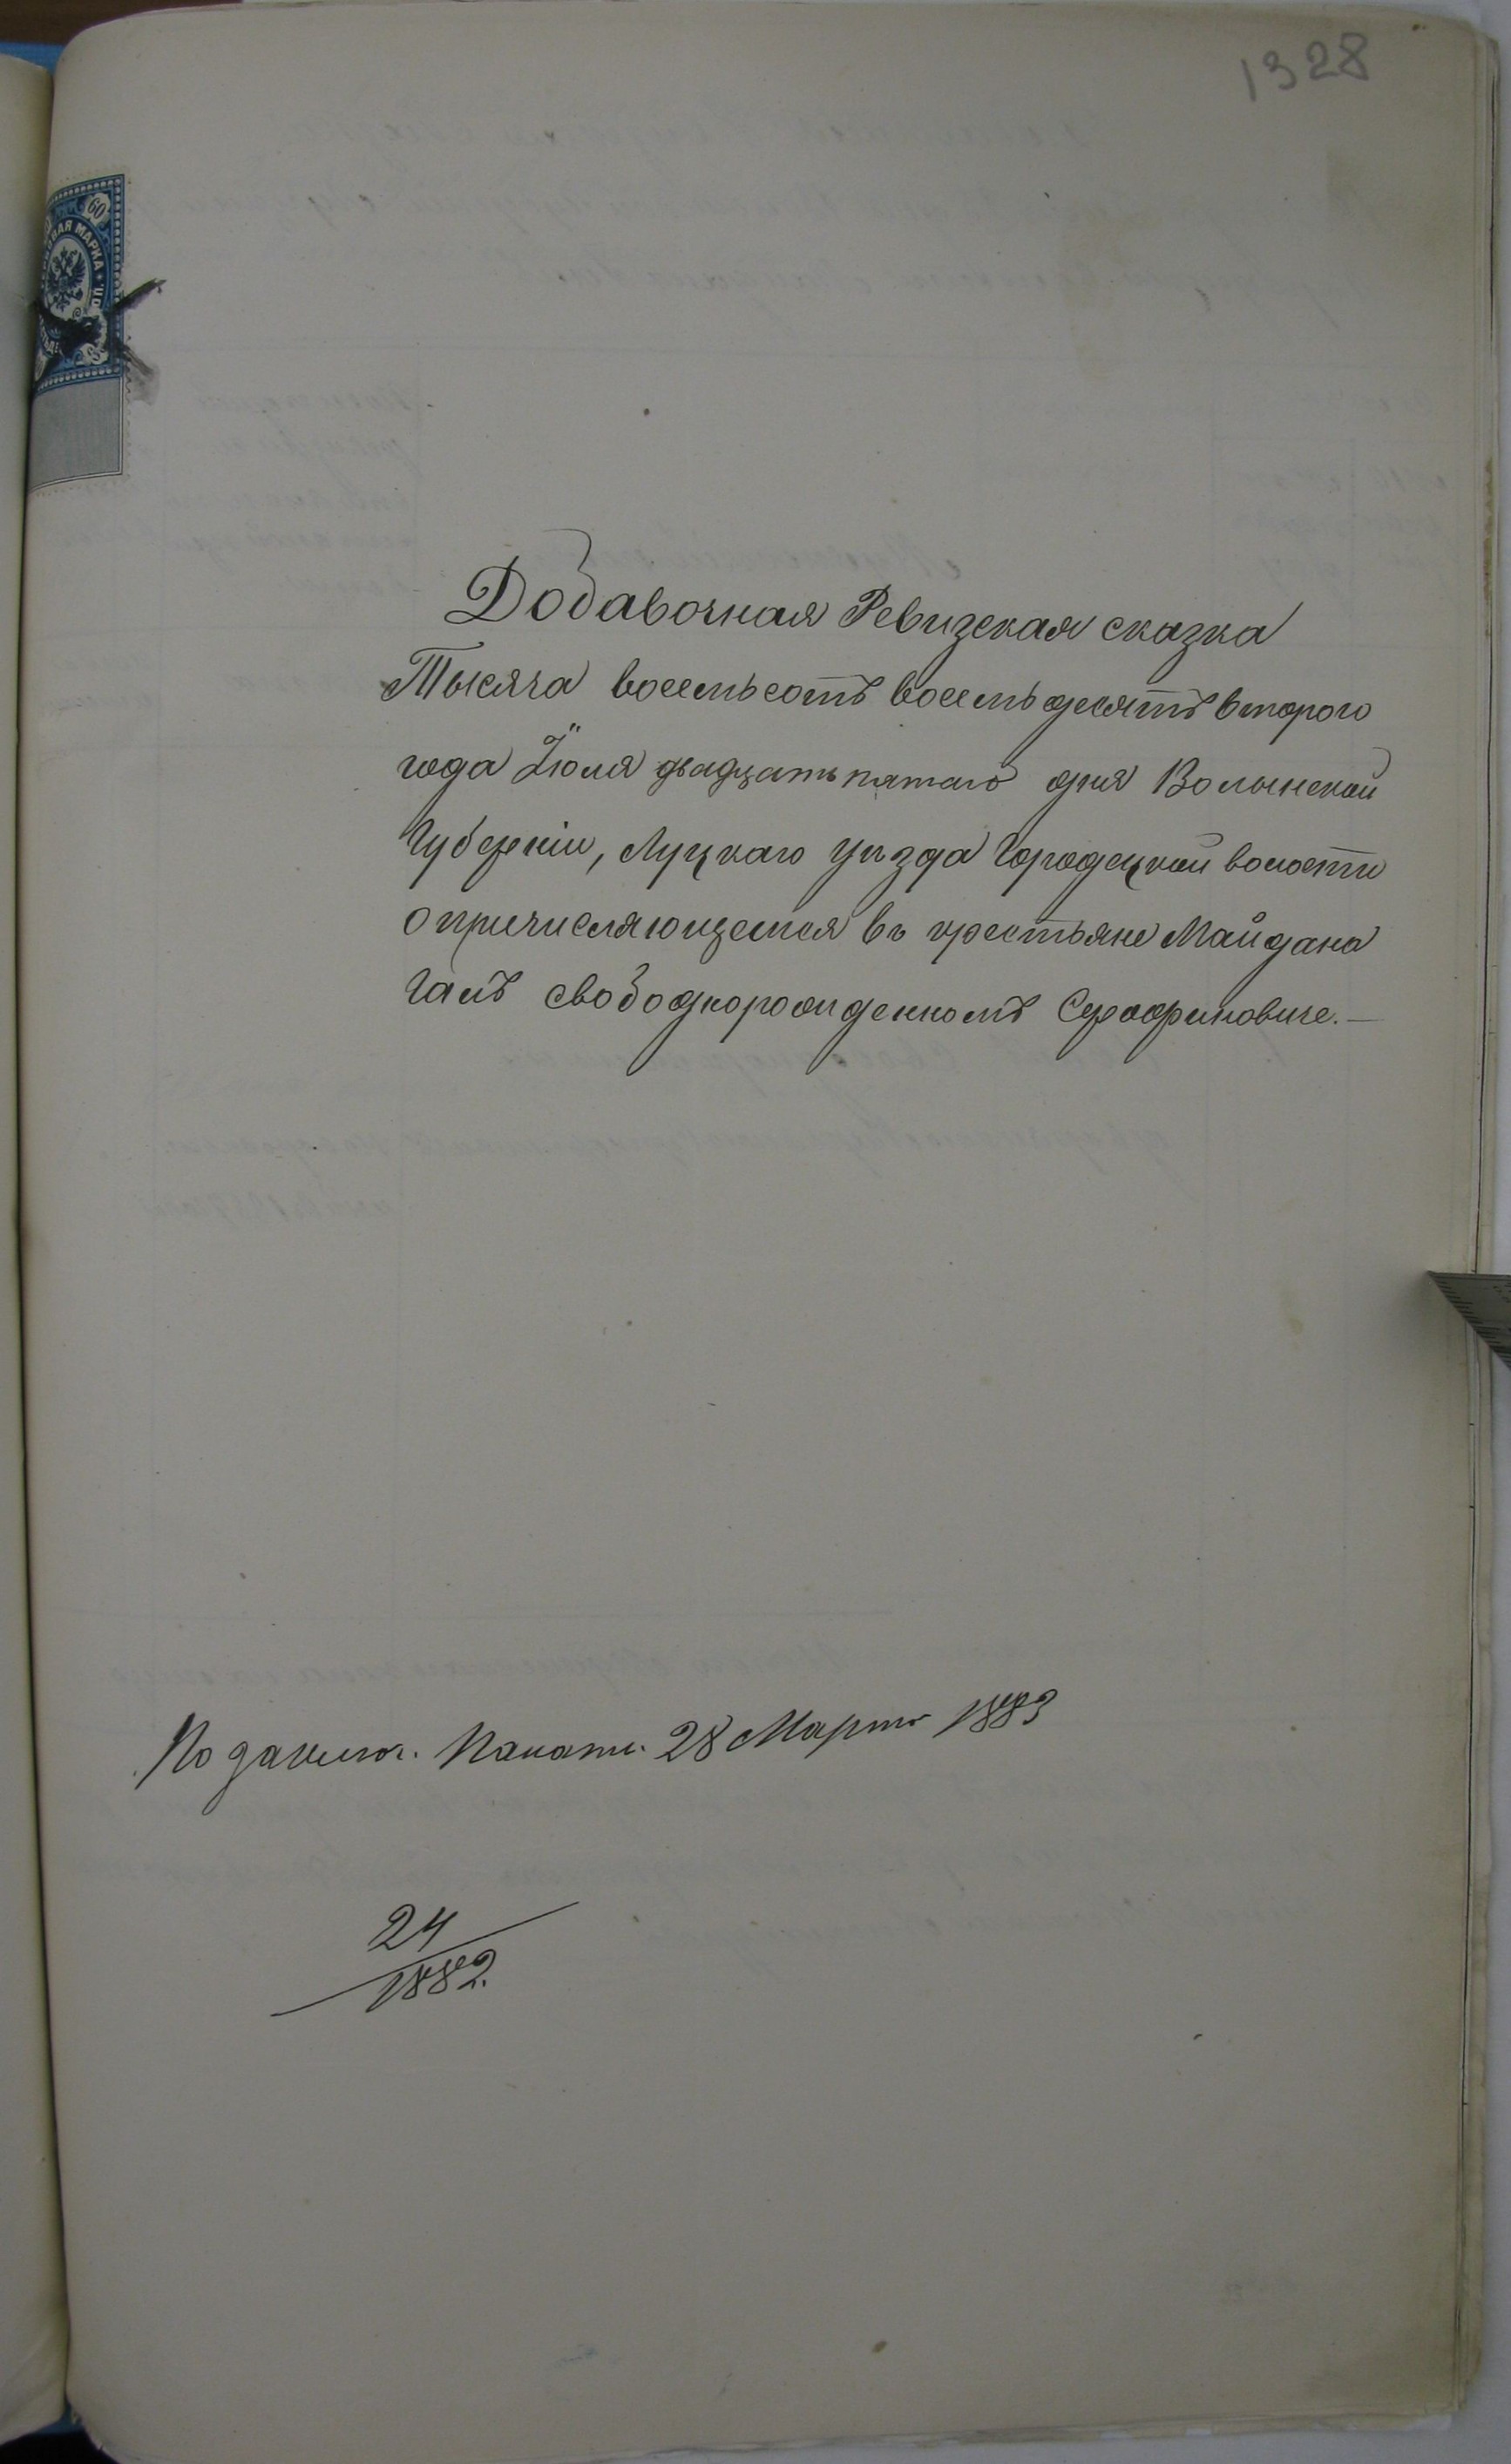 1328
60
МАРКА
Добавочная Ревизская сказка
Тысяча восемьсотъ восемьдесятъ второго
года Іюля двадцать пятаго дня Волынской
Губерніи, Луцкаго уѣзда Городецкой волости
о причисляющемся въ крестьяне Майдана
Галъ свободнорожденномъ Серафиновиче.—
По заключ. Палаты. 28 Марта 1883
24
1882.